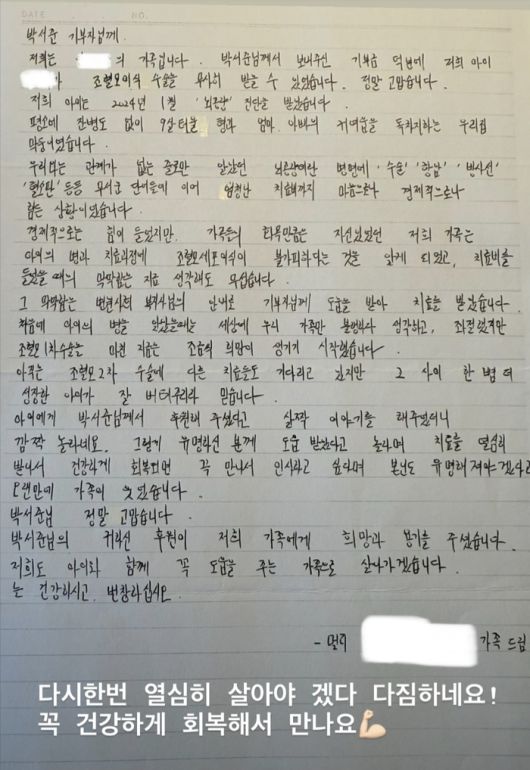 DATE . . . NO.
박서준 기부자님께.
저희는 의 가족입니다. 박서준님께서 보내주신 기부금 덕분에 저희 아이
가 조혈모이식 수술을 무사히 받을 수 있었습니다. 정말 고맙습니다.
저희 아이는 2024년 1월 '뇌종양' 진단을 받았습니다.
평소에 잔병도 없이 9살 터울 형과 엄마, 아빠의 귀여움을 독차지하는 우리집
막둥이였습니다.
우리와는 관계가 없는 줄로만 알았던 뇌종양이란 병명에 '수술' '항암' '방사선'
'혈소판' 등등 무서운 단어들에 이어 엄청난 치료비까지 마음으로나 경제적으로나
힘든 상황이었습니다.
경제적으로는 힘이 들었지만, 가족들의 화목만큼은 자신있었던 저희 가족은
아이의 병과 치료과정에 조혈모세포이식이 불가피하다는 것을 알게 되었고, 치료비를
들었을 때의 막막함는 지금 생각해도 무섭습니다.
그 막막함는 병원사회 복지사님의 안내로 기부자님께 도움을 받아 치료를 받았습니다.
처음에 아이의 병을 알았을때는 세상에 우리 가족만 불행하다 생각하고, 좌절했지만
조혈모 1차수술을 마친 지금은 조금씩 희망이 생기기 시작했습니다.
아직은 조혈모 2차 수술에 다른 치료들도 기다리고 있지만 그 사이 한 뼘 더
성장한 아이가 잘 버텨주리라 믿습니다.
아이에게 박서준님께서 후원해 주셨다고 살짝 이야기를 해주었더니
깜짝 놀라네요. 그렇게 유명하신 분께 도움 받았다고 놀라며 치료를 열심히
받아서 건강하게 회복되면 꼭 만나서 인사하고 싶다며 본인도 유명해져야겠다고
오랜만에 가족이 웃었습니다.
박서준님 정말 고맙습니다.
박서준님의 귀하신 후원이 저희 가족에게 희망과 용기를 주셨습니다.
저희도 아이와 함께 꼭 도움을 주는 가족으로 살아가겠습니다.
늘 건강하시고, 번창하십시오.
- 멀리 가족 드림
다시한번 열심히 살아야 겠다 다짐하네요!
꼭 건강하게 회복해서 만나요💪🏻